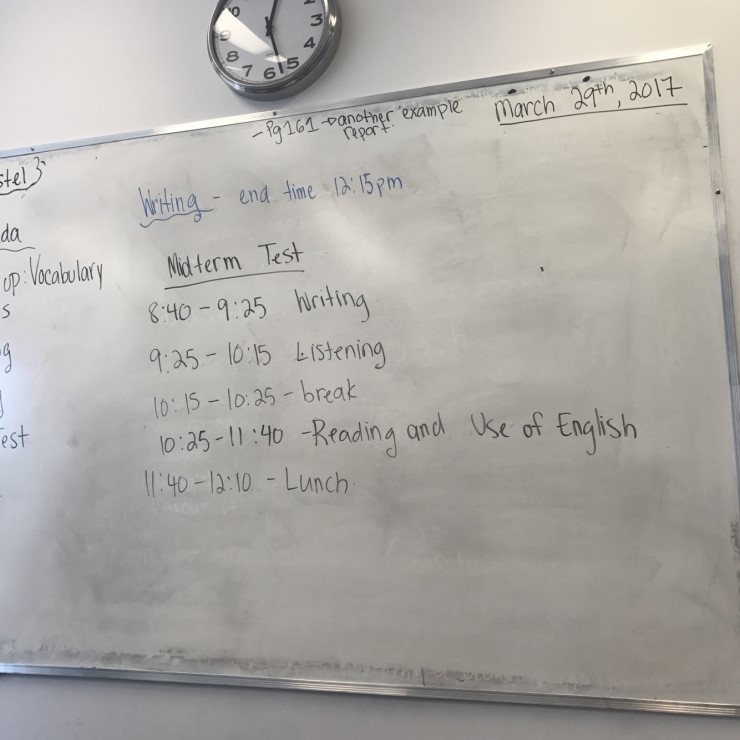 3
4
5
6
7
8
March 29th, 2017
- Pg 161 → another example
report.
Writing - end time 12:15pm
da
op: Vocabulary
s
g
est
Midterm Test
8:40 - 9:25 Writing
9:25 - 10:15 Listening
10:15 - 10:25 - break
10:25 - 11:40 - Reading and Use of English
11:40 - 12:10 - Lunch